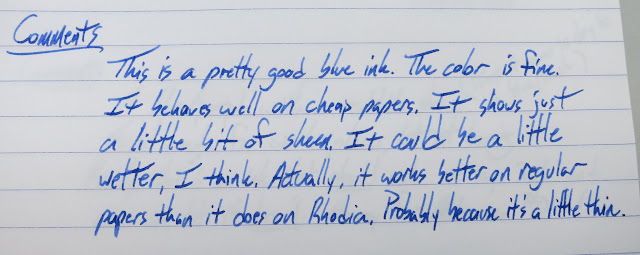 Comments
This is a pretty good blue ink. The color is fine.
It behaves well on cheap papers. It shows just
a little bit of sheen. It could be a little
wetter, I think. Actually, it works better on regular
papers than it does on Rhodia. Probably because it's a little thin.